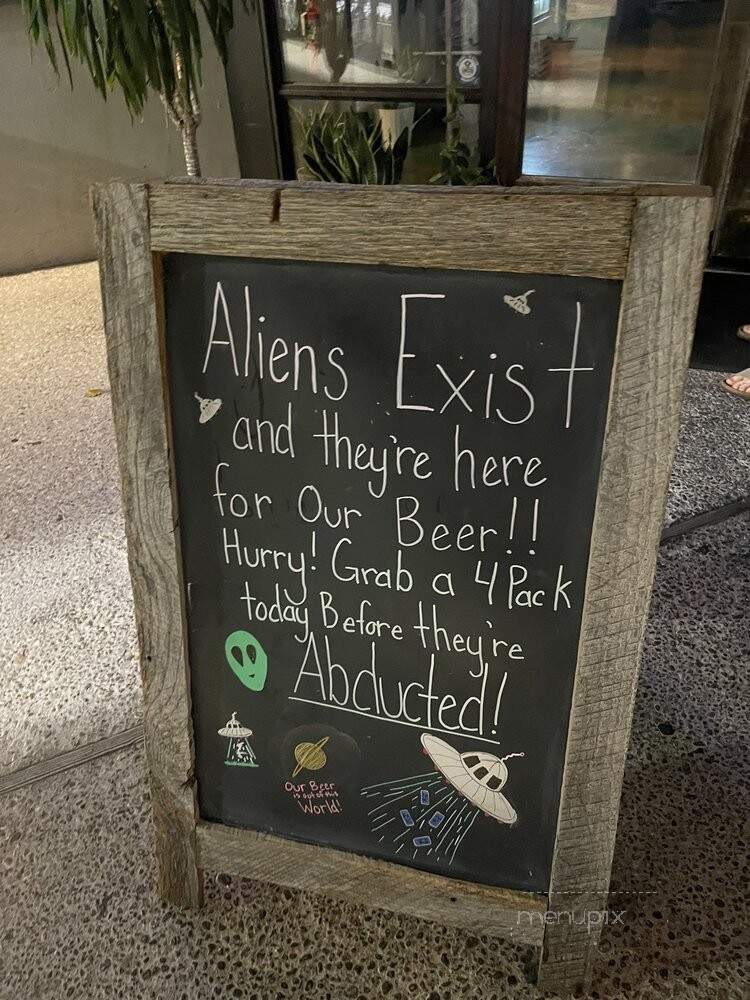 Aliens Exist
and they're here
for Our Beer!!
Hurry! Grab a 4 Pack
today Before they're
Abducted!
Our Beer
is out of this
World!
menupix